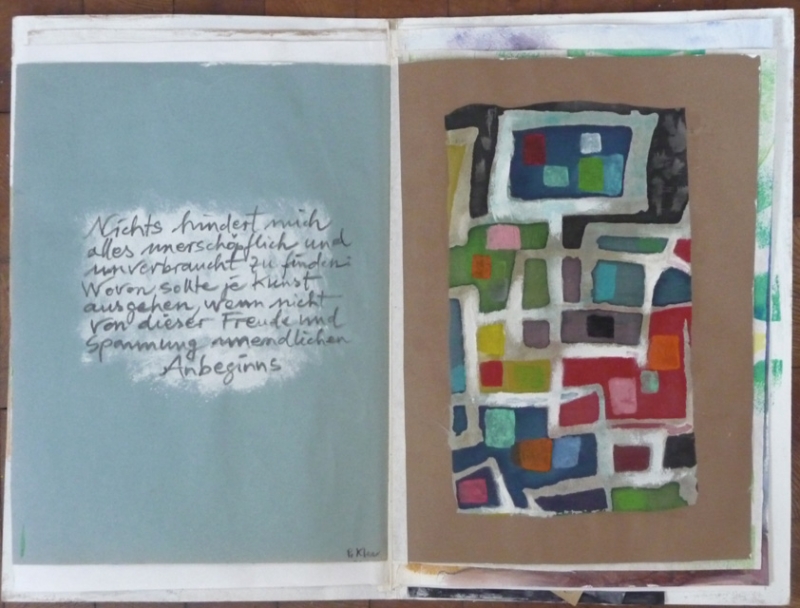 Nichts hindert mich
alles unerschöpflich und
unverbraucht zu finden:
Wovon sollte je Kunst
ausgehen, wenn nicht
von dieser Freude und
Spannung unendlichen
Anbeginns